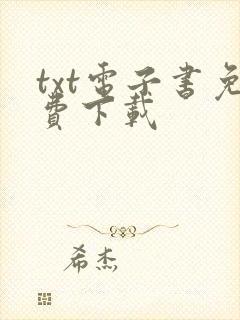 txt電子書免
費下載
希杰